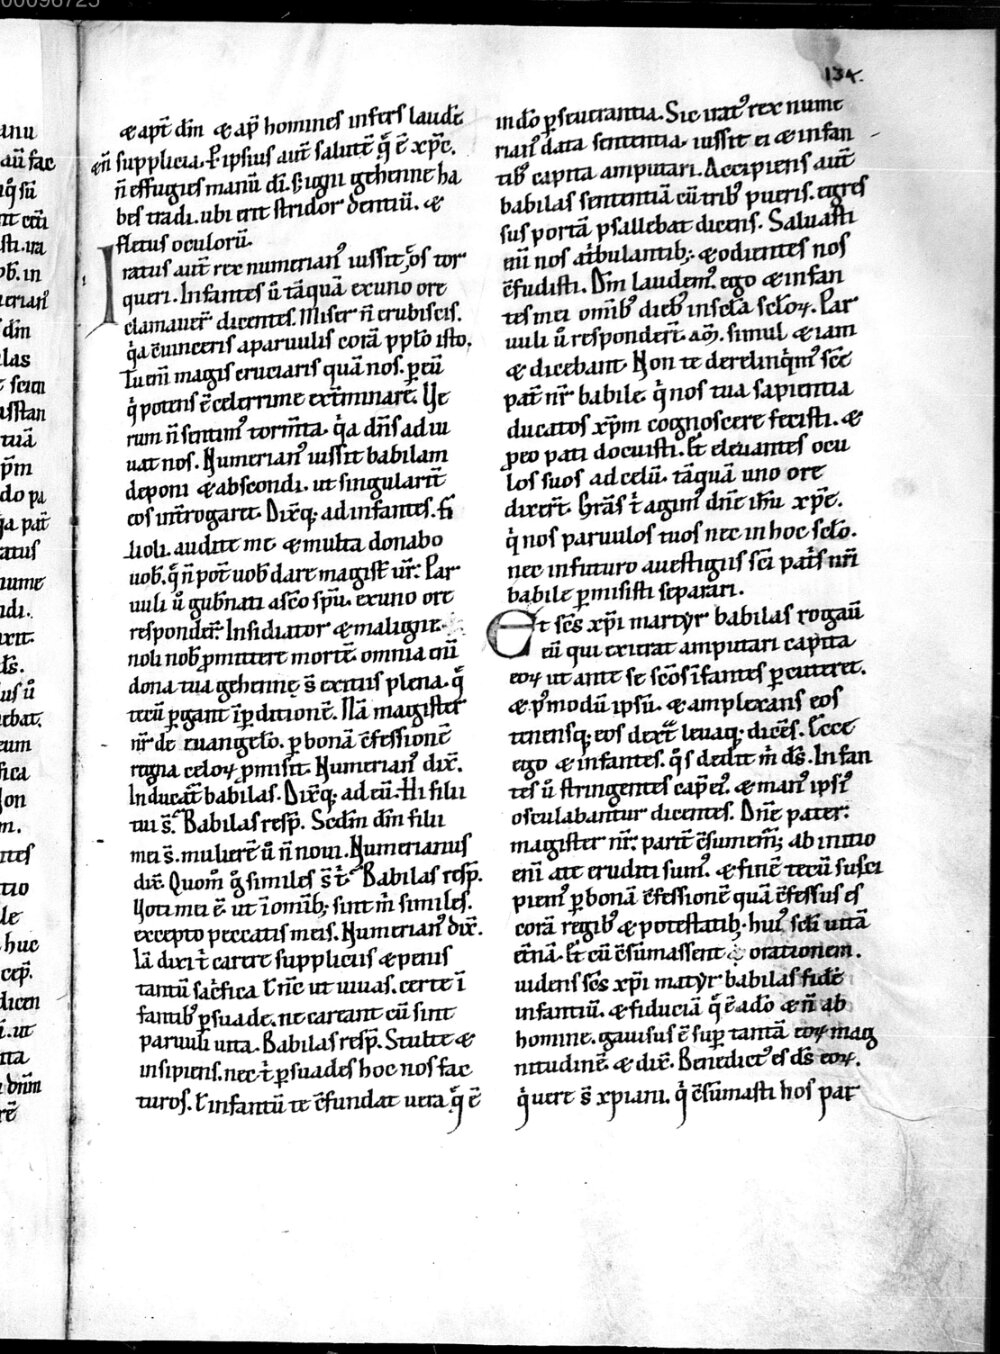 134.
& apt̄ dm̄ & ap̄ homines infers laudē
& n̄ supplicia. P ipsius aut̄ salutē q̄ ē xp̄c.
n̄ effugies manū dī. s; igni gehenne ha
bes tradi. ubi erit stridor dentiū. &
fletus oculorū.
Iratus aut̄ rex numerian᾿ iussit eos tor
queri. Infantes ū tāquā ex uno ore
clamauer̄ dicentes. Miser n̄ erubiscis.
q̇a c̄uinceris a paruulis corā pp̄lo isto.
Tu eni magis cruciaris quā nos. p eū
q̇ potens ē celerrime ext̄minare. Ue
rum n̄ sentim᾿ torm̄ta. q̇a dn̄s adiu
uat nos. Numerian᾿ iussit babilam
deponi & abscondi. ut singularit̄
eos int̄rogaret. Dixq; ad infantes. fi
lioli. audite me & multa donabo
uob. q̄ n̄ pot̄ uob dare magist̄ ur̄. Par
uuli ū gub̄nati a sc̄o sp̄u. ex uno ore
responder̄. Insidiator & maligne.
noli nob p̱mittere mortē. omnia eni
dona tua gehenne s̄ exitiis plena. q̄
tecū p̱gant ip̱ditionē. Nā magister
nr̄ de euangelo. p bonā c̄fessionē
regna celoꝝ p̱misit. Numerian᾿ dix̄.
Inducat̄ babilas. Dixq; ad eū. Hi filii
tui s̄. Babilas resp̄. Scdm̄ dm̄ filii
mei s̄. mulierē ū n̄ noui. Numerianus
dix̄. Quom̄ g̊ similes s̄ t̄. Babilas resp̄.
Uoti mei ē. ut ī omib; sint m̄ similes.
excepto peccatis meis. Numerian᾿ dix̄.
Iā dixi t̄ carere suppliciis & penis
tantū sac̄fica. & nc̄ ut uiuas. certe ī
fantib᾿ p̱suade. ne careant cū sint
paruuli uita. Babilas resp̄. Stulte &
insipiens. nec t̄ p̱suades hoc nos fac
turos. & infantū te c̄fundat uera q̄ ē
in dō p̱seuerantia. Sic irat᾿ rex nume
rian᾿ data sententia. iussit ei & infan
tib᾿ capita amputari. Accipiens aut̄
babilas sententiā cū trib᾿ pueris. egres
sus portā psallebat dicens. Saluasti
eni nos a tribulantib; & odientes nos
c̄fudisti. Dm̄ laudem᾿ ego & infan
tes mei omib᾿ dieb᾿ in sc̄la sc̄loꝝ. Par
uuli ū respondert̄. am̄. simul & iam
& dicebant. Non te derelinq̇m᾿ sc̄e
pat̄ nr̄ babile. q̇ nos tua sapientia
ducatos xp̄m cognoscere fecisti. &
p̱ eo pati docuisti. Et eleuantes ocu
los suos ad celū. tāquā uno ore
dixert̄. Grās t̄ agim᾿ dn̄e ih̄u xp̄e.
q̇ nos paruulos tuos nec in hoc sc̄lo.
nec in futuro a uestigiis sc̄i pat̄s nr̄i
babile p̱misisti separari.
Et sc̄s xp̄i martyr babilas rogau̅
eū qui exierat amputari capita
eoꝝ ut ante se sc̄os īfantes p̱cuteret.
& p᾿modū ipsū. & amplexans eos
tenensq; eos dext̄ leuaq; dicēs. Ecce
ego & infantes. q̊s dedit m̄ ds̄. Infan
tes ū stringentes cap ei᾿ & man᾿ ipsi᾿
osculabantur dicentes. Dn̄e pater.
magister nr̄. parit̄ c̄sumem̄; ab initio
eni a te eruditi sum᾿. & finē tecū susci
piem᾿ p bonā c̄fessionē quā c̄fessus es
corā regib᾿ & potestatib;. hui᾿ sc̄li uitā
et̄nā. Et cū c̄sumassent orationem.
uidens sc̄s xp̄i matyr babilas fidē
infantiū. & fiduciā q̄ ē a dō & n̄ ab
homine. gauisus ē sup̱ tantā eoꝝ mag
nitudinē & dix̄. Benedict᾿ es ds̄ eoꝝ.
q̇ uere s̄ xpiani. q̇ c̄sumasti hos par